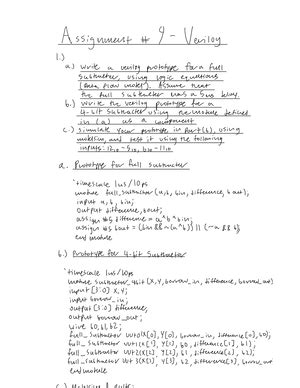 Assignment # 9 - Verilog
1.)
a.) write a verilog prototype for a full
subtractor, using logic equations
(data flow model). Assume that
the full subtractor has a 5ns delay.
b.) write the verilog prototype for a
4-bit subtractor using the module defined
in (a) as a component
c.) simulate your prototype in Part (b), using
modelsim, and test it using the following
inputs: 12₁₀ - 5₁₀, 6₁₀ - 11₁₀
a. Prototype for full subtractor
`timescale 1ns/10ps
module full_subtractor (a, b, bin, difference, bout);
input a, b, bin;
output difference, bout;
assign #5 difference = a^b^bin;
assign #5 bout = (bin && ~(a^b)) || (~a && b);
endmodule
b.) Prototype for 4-bit subtractor
`timescale 1ns/10ps
module subtractor_4bit (X, Y, borrow_in, difference, borrow_out)
input [3:0] X, Y;
input borrow_in;
output [3:0] difference;
output borrow_out;
wire b0, b1, b2;
full_subtractor (X[0], Y[0], borrow_in, difference[0], b0);
full_subtractor (X[1], Y[1], b0, difference[1], b1);
full_subtractor (X[2], Y[2], b1, difference[2], b2);
full_subtractor (X[3], Y[3], b2, difference[3], borrow_out)
endmodule